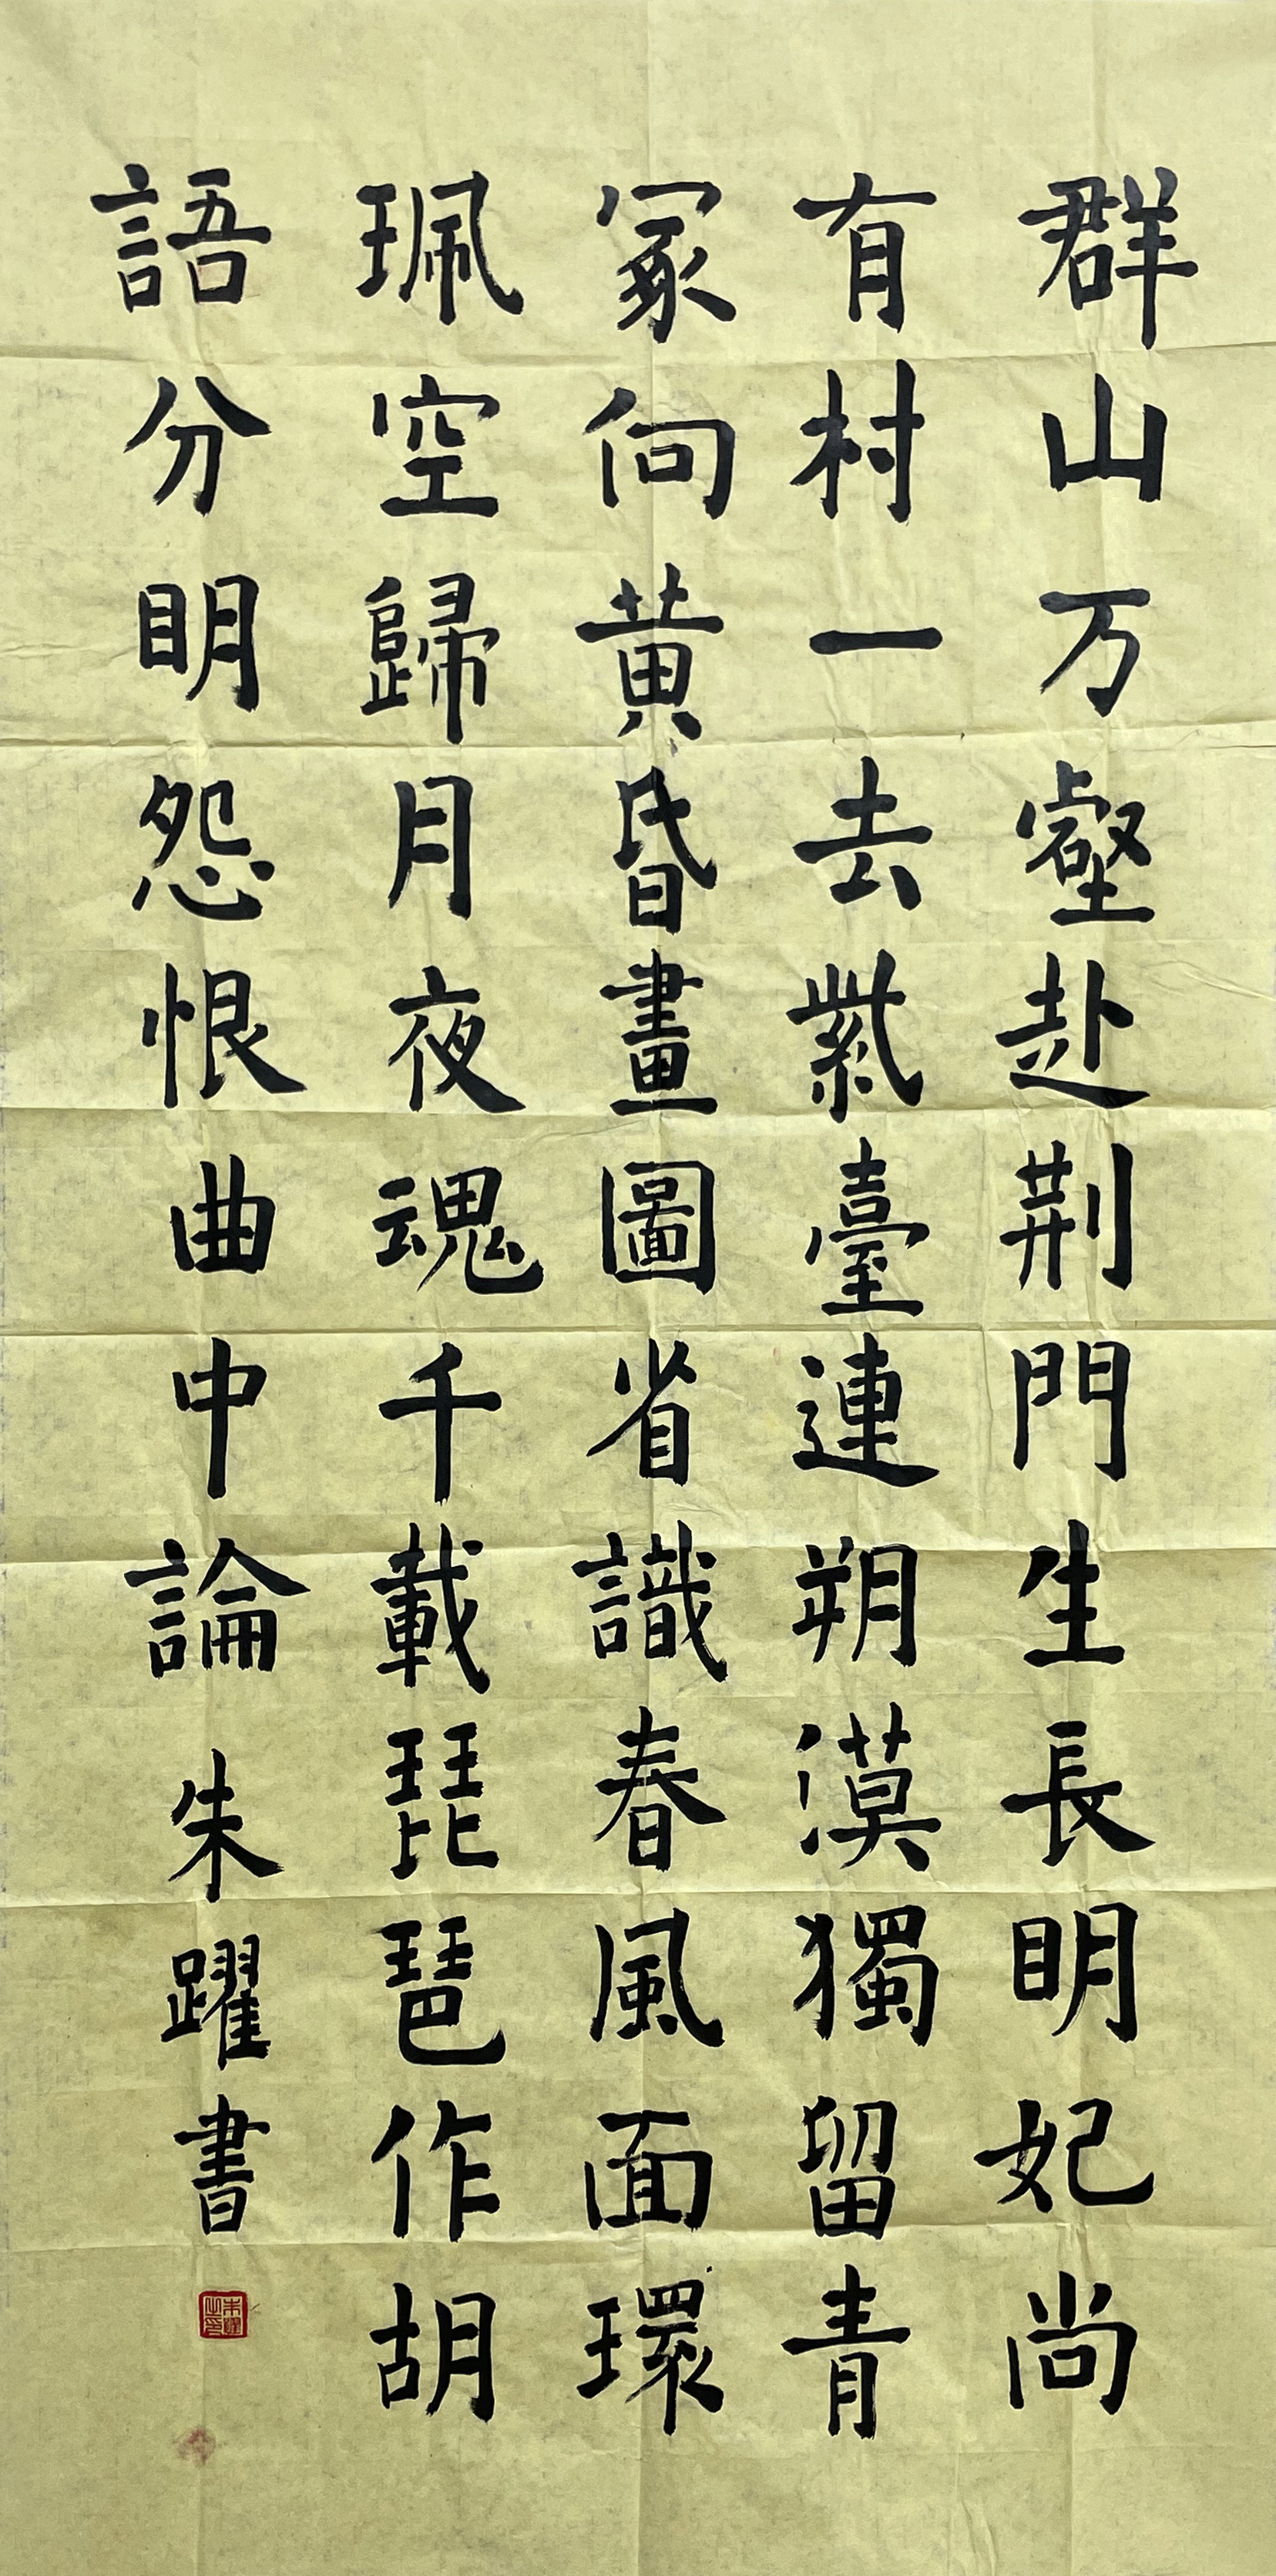 群山万壑赴荆門生長明妃尚
有村一去紫臺連朔漠獨留青
冢向黃昏畫圖省識春風面環
珮空歸月夜魂千載琵琶作胡
語分明怨恨曲中論朱躍書
朱躍之印